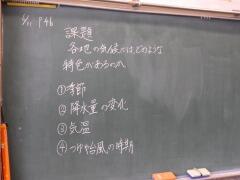 6/11 P46
課題
各地の気候にはどのような
特色があるのか
①季節
②降水量の変化
③気温
④つゆや台風の時期